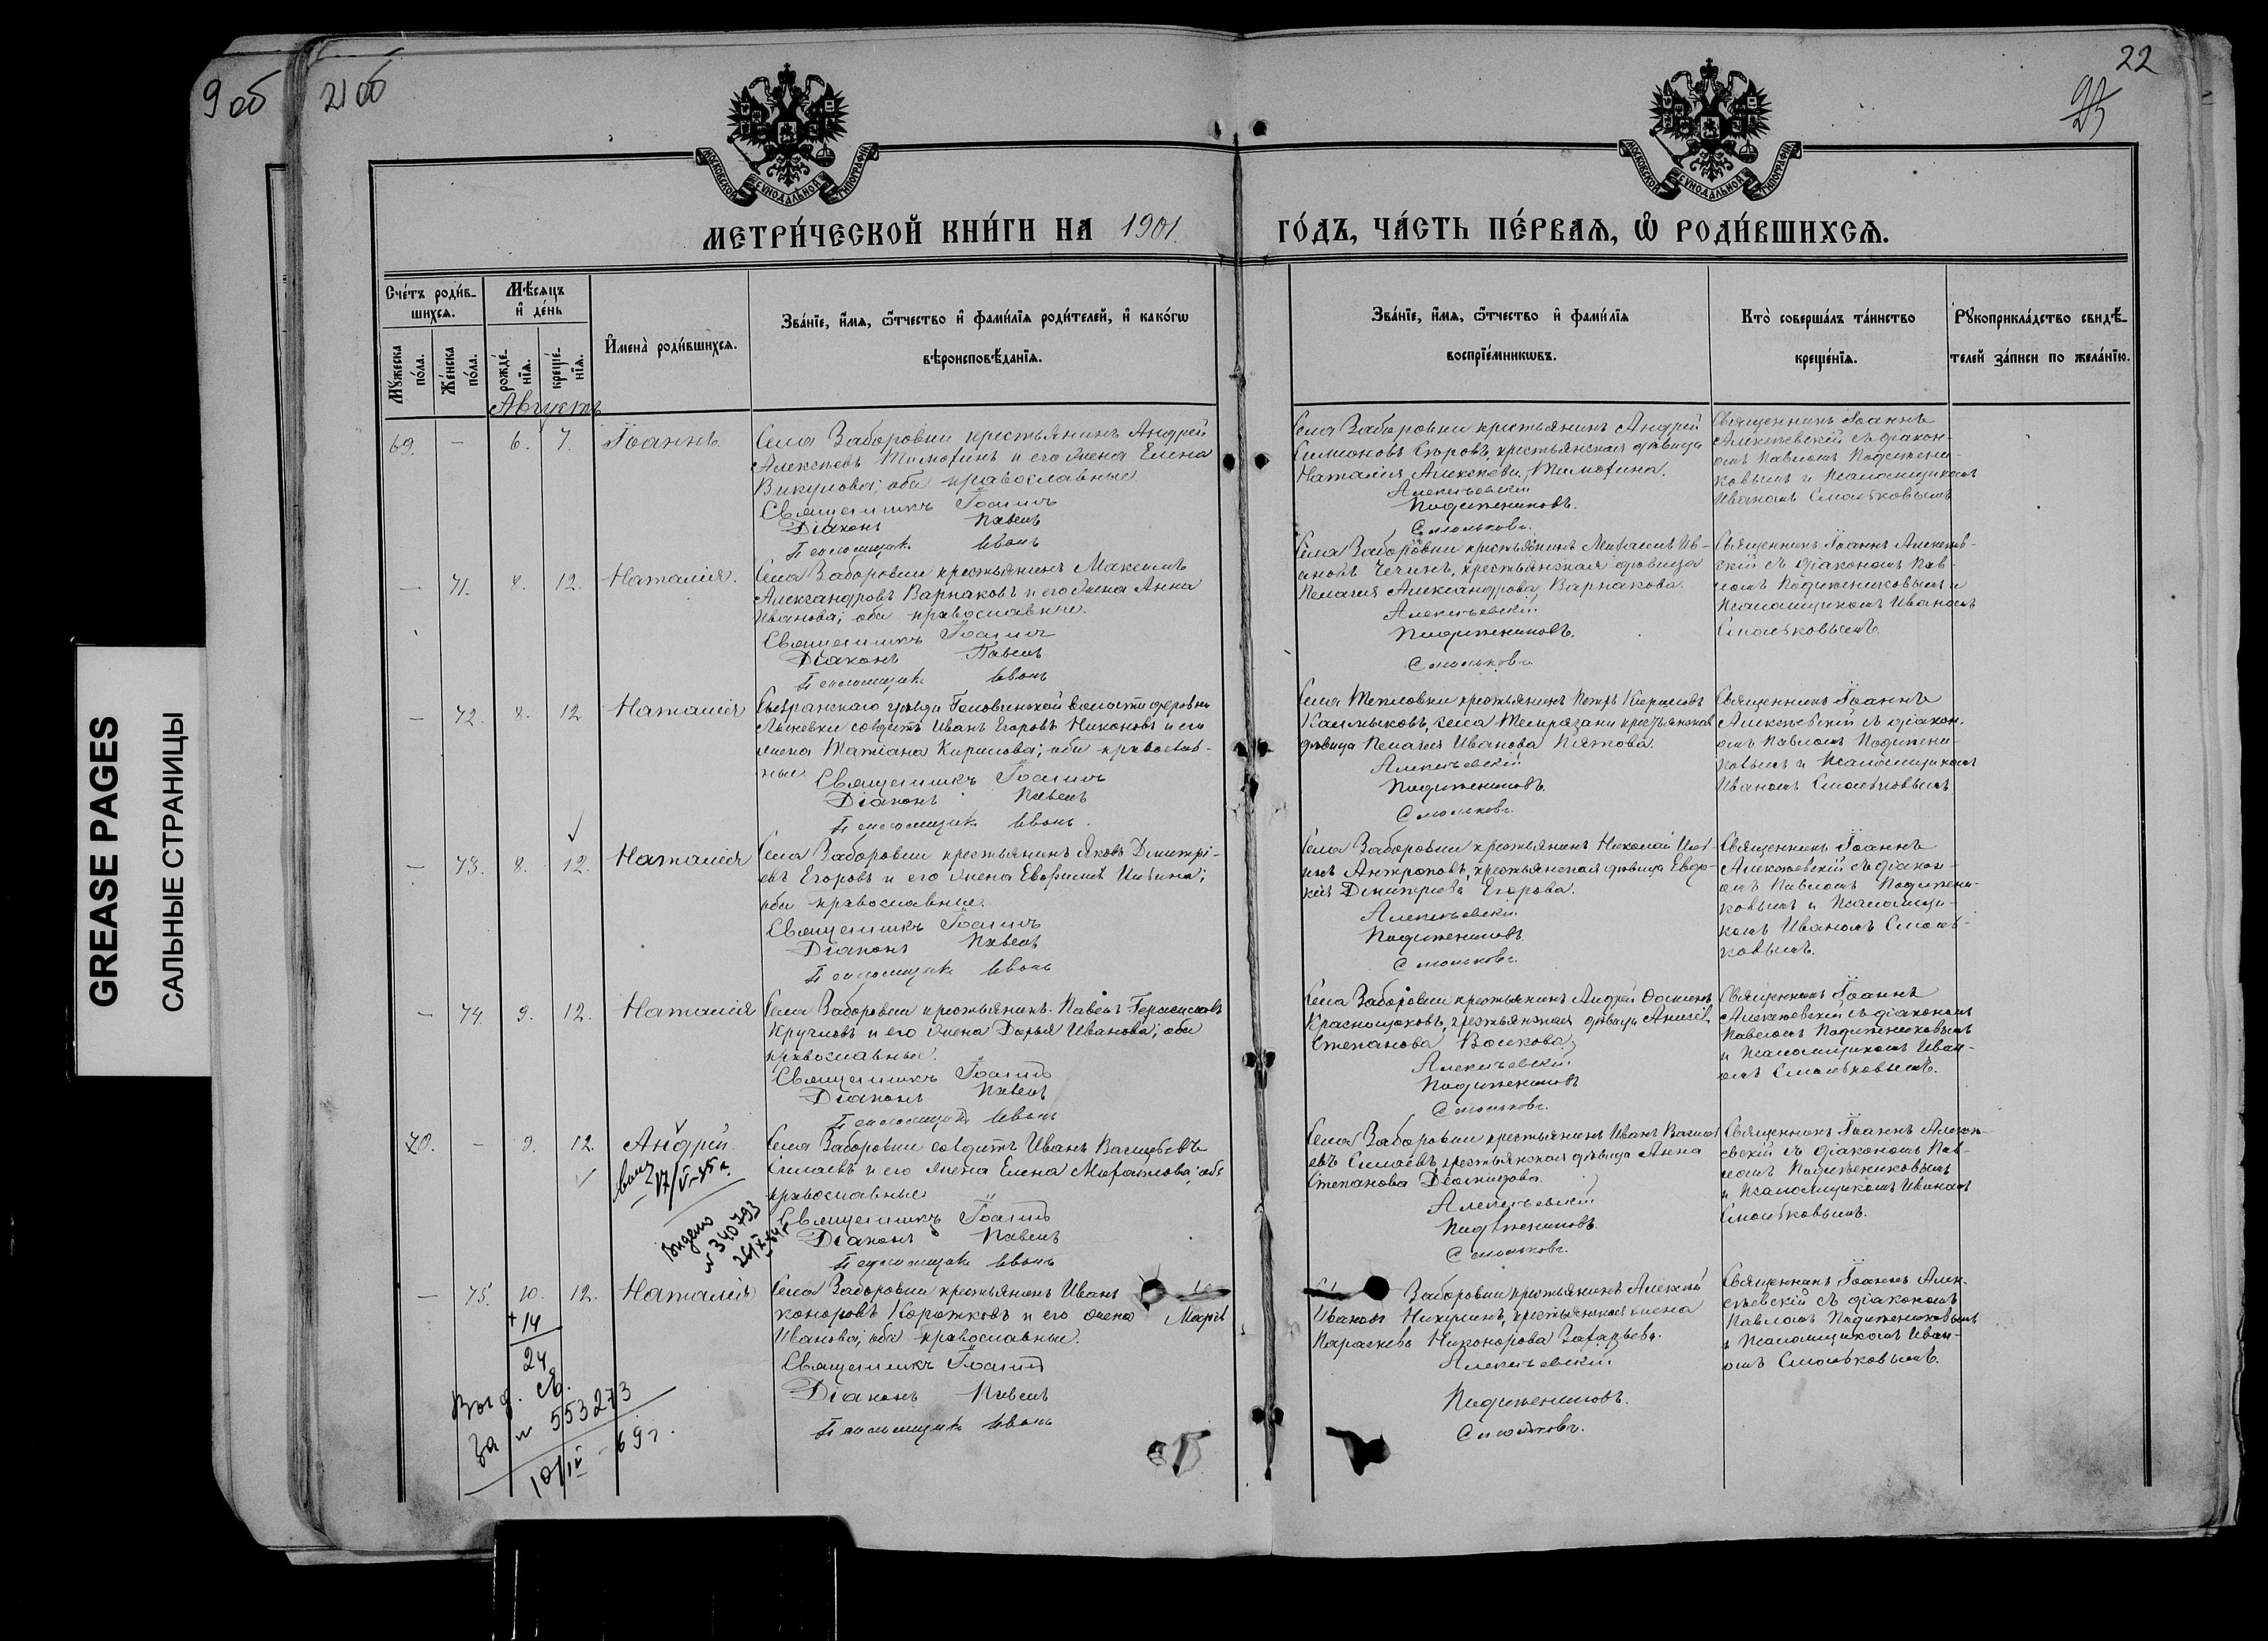 9 об
21 об
22
МОСКОВСКОЙ СѴНОДАЛЬНОЙ ТИПОГРАФІИ
МОСКОВСКОЙ СѴНОДАЛЬНОЙ ТИПОГРАФІИ
МЕТРИ́ЧЕСКОЙ КНИ́ГИ НА 1901. ГО́ДЪ, ЧА́СТЬ ПЕ́РВАѦ, Ѡ РОДИ́ВШИХСѦ.
Сче́тъ роди́в-
шихсѧ.
Мѣ́сѧцъ
и де́нь
Мꙋжеска по́ла.
Же́нска по́ла.
рожде́-
нїѧ.
креще́-
нїѧ.
Имена̀ роди́вшихсѧ.
Зва́нїе, и́мѧ, ѻ҆́тчество и фами́лїѧ роди́телей, и како́гѡ
вѣроисповѣ́данїѧ.
Зва́нїе, и́мѧ, ѻ҆́тчество и фами́лїѧ
воспрїе́мникѡвъ.
Кто̀ соверша́лъ та́инство
креще́нїѧ.
Рꙋкоприкла́дство свидѣ́-
телей за́писи по жела́нїю.
Августъ
69. - 6. 7. Іоаннъ
Села Заборовки крестьянинъ Андрей
Алексѣевъ Тимофинъ и его жена Елена
Викулова; оба православные
Священникъ Іоаннъ
Діаконъ Павелъ
Псаломщикъ Иванъ
Села Заборовки крестьянинъ Андрей
Симионовъ Егоровъ, крестьянская дѣвица
Наталія Алексѣева Тимофина.
Алексѣевскій
Подъжениковъ.
Смольковъ.
Священникъ Іоаннъ
Алексѣевскій съ діакон-
омъ Павломъ Подъжени-
ковымъ и Псаломщикомъ
Иваномъ Смольковымъ
- 71. 8. 12. Наталія.
Села Заборовки крестьянинъ Максимъ
Александровъ Варнаковъ и его жена Анна
Иванова; оба православные.
Священникъ Іоаннъ
Діаконъ Павелъ
Псаломщикъ Иванъ
Села Заборовки крестьянинъ Михаилъ Ив-
ановъ Чечинъ, крестьянская дѣвица
Пелагія Александрова Варнакова.
Алексѣевскій
Подъжениковъ.
Смольковъ.
Священникъ Іоаннъ Алексѣев-
скій съ діакономъ Пав-
ломъ Подъжениковымъ и
Псаломщикомъ Иваномъ
Смольковымъ.
- 72. 8. 12 Наталія
Сызранскаго уѣзда Головинской волости деревни
солдатъ Иванъ Егоровъ Никоновъ и его
жена Татіана Кирилова; оба православ-
ные
Священникъ Іоаннъ
Діаконъ Павелъ
Псаломщикъ Иванъ.
Села Тепловки крестьянинъ Петръ Кириловъ
Калмыковъ, села Темрязани крестьянская
дѣвица Пелагія Иванова Пятова.
Алексѣевскій
Подъжениковъ.
Смольковъ.
Священникъ Іоаннъ
Алексѣевскій съ діакон-
омъ Павломъ Подъжени-
ковымъ и Псаломщикомъ
Иваномъ Смольковымъ
- 73. 8. 12. Наталія
Села Заборовки крестьянинъ Яковъ Димитрі-
евъ Егоровъ и его жена Евфимія Ильина;
оба православные.
Священникъ Іоаннъ
Діаконъ Павелъ
Псаломщикъ Иванъ
Села Заборовки крестьянинъ Николай
Антроповъ, крестьянская дѣвица Евдо-
кія Димитріева Егорова.
Алексѣевскій
Подъжениковъ
Смольковъ.
Священникъ Іоаннъ
Алексѣевскій съ діакон-
омъ Павломъ Подъжени-
ковымъ и Псаломщи-
комъ Иваномъ Смоль-
ковымъ.
- 74. 9. 12. Наталія
Села Заборовки крестьянинъ Павелъ Герасимовъ
Кругловъ и его жена Дарья Иванова; оба
православные.
Священникъ Іоаннъ
Діаконъ Павелъ
Псаломщикъ Иванъ
Села Заборовки крестьянинъ Андрей
Краснощоковъ, крестьянская дѣвица Анисія
Степанова Волкова.
Алексѣевскій
Подъжениковъ
Смольковъ.
Священникъ Іоаннъ
Алексѣевскій съ діакономъ
Павломъ Подъжениковымъ
и Псаломщикомъ Иван-
омъ Смольковымъ.
70. - 9. 12. Андрей.
Села Заборовки солдатъ Иванъ Васильевъ
Силаевъ и его жена Елена Михайлова; оба
православные
Священникъ Іоаннъ
Діаконъ Павелъ
Псаломщикъ Иванъ
Села Заборовки крестьянинъ Иванъ Василь-
евъ Силаевъ, крестьянская дѣвица Анна
Степанова Демидова.
Алексѣевскій
Подъжениковъ.
Смольковъ.
Священникъ Іоаннъ Алексѣ-
евскій съ діакономъ Пав-
ломъ Подъжениковымъ
и Псаломщикомъ Иваномъ
Смольковымъ.
17/V-45 г.
Выдано
№ 340793
- 75. 10. 12. Наталія
Села Заборовки крестьянинъ Иванъ
коноровъ Коротковъ и его жена Марія
Иванова; оба православные.
Священникъ Іоаннъ
Діаконъ Павелъ
Псаломщикъ Иванъ
Заборовки крестьянинъ Алексѣй
Ивановъ Никулинъ, крестьянская жена
Параскева Никонорова Захарьева.
Алексѣевскій
Подъжениковъ.
Смольковъ.
Священникъ Іоаннъ Алек-
сѣевскій съ діакономъ
Павломъ Подъжениковымъ
и Псаломщикомъ Иван-
омъ Смольковымъ.
+14
24
Выд. св.
за № 553273
10/IV-69 г.
GREASE PAGES
САЛЬНЫЕ СТРАНИЦЫ